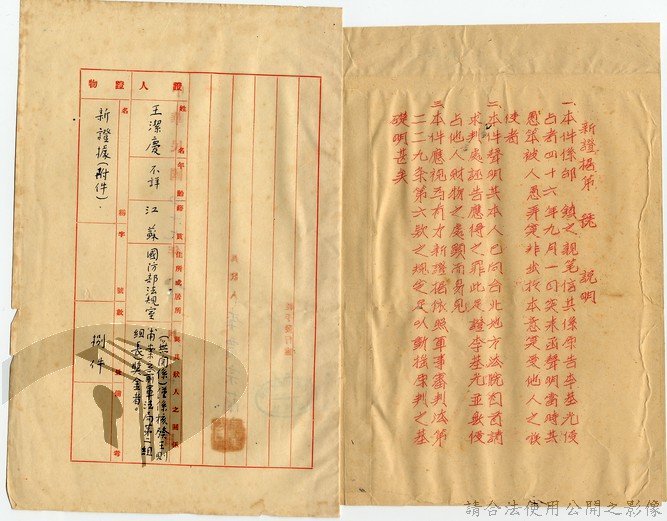 新證據第 號 說明
一、本件係邱 鎮之親筆信其係原告李基光侵
占者四十六年九月一日突來函聲明當時其
愚笨被人愚弄實非出於本意實受他人之唆
使者
二、本件聲明其本人已向台北地方法院自首請
求判處誣告應得之罪此足證李基光並無侵
占他人財物之處顯而易見
三、本件應視為有力新證據依照軍事審判法第
二二九條第六款之規定足以動搖原判之基
礎明甚矣
證人
姓名 年齡 籍貫 住所或居所 與具狀人之關係
王潔慶 不詳 江蘇 國防部法規室
組長獎金者。
證物
名稱 字號 數
新證據(附件). 捌件
請合法使用公開之影像